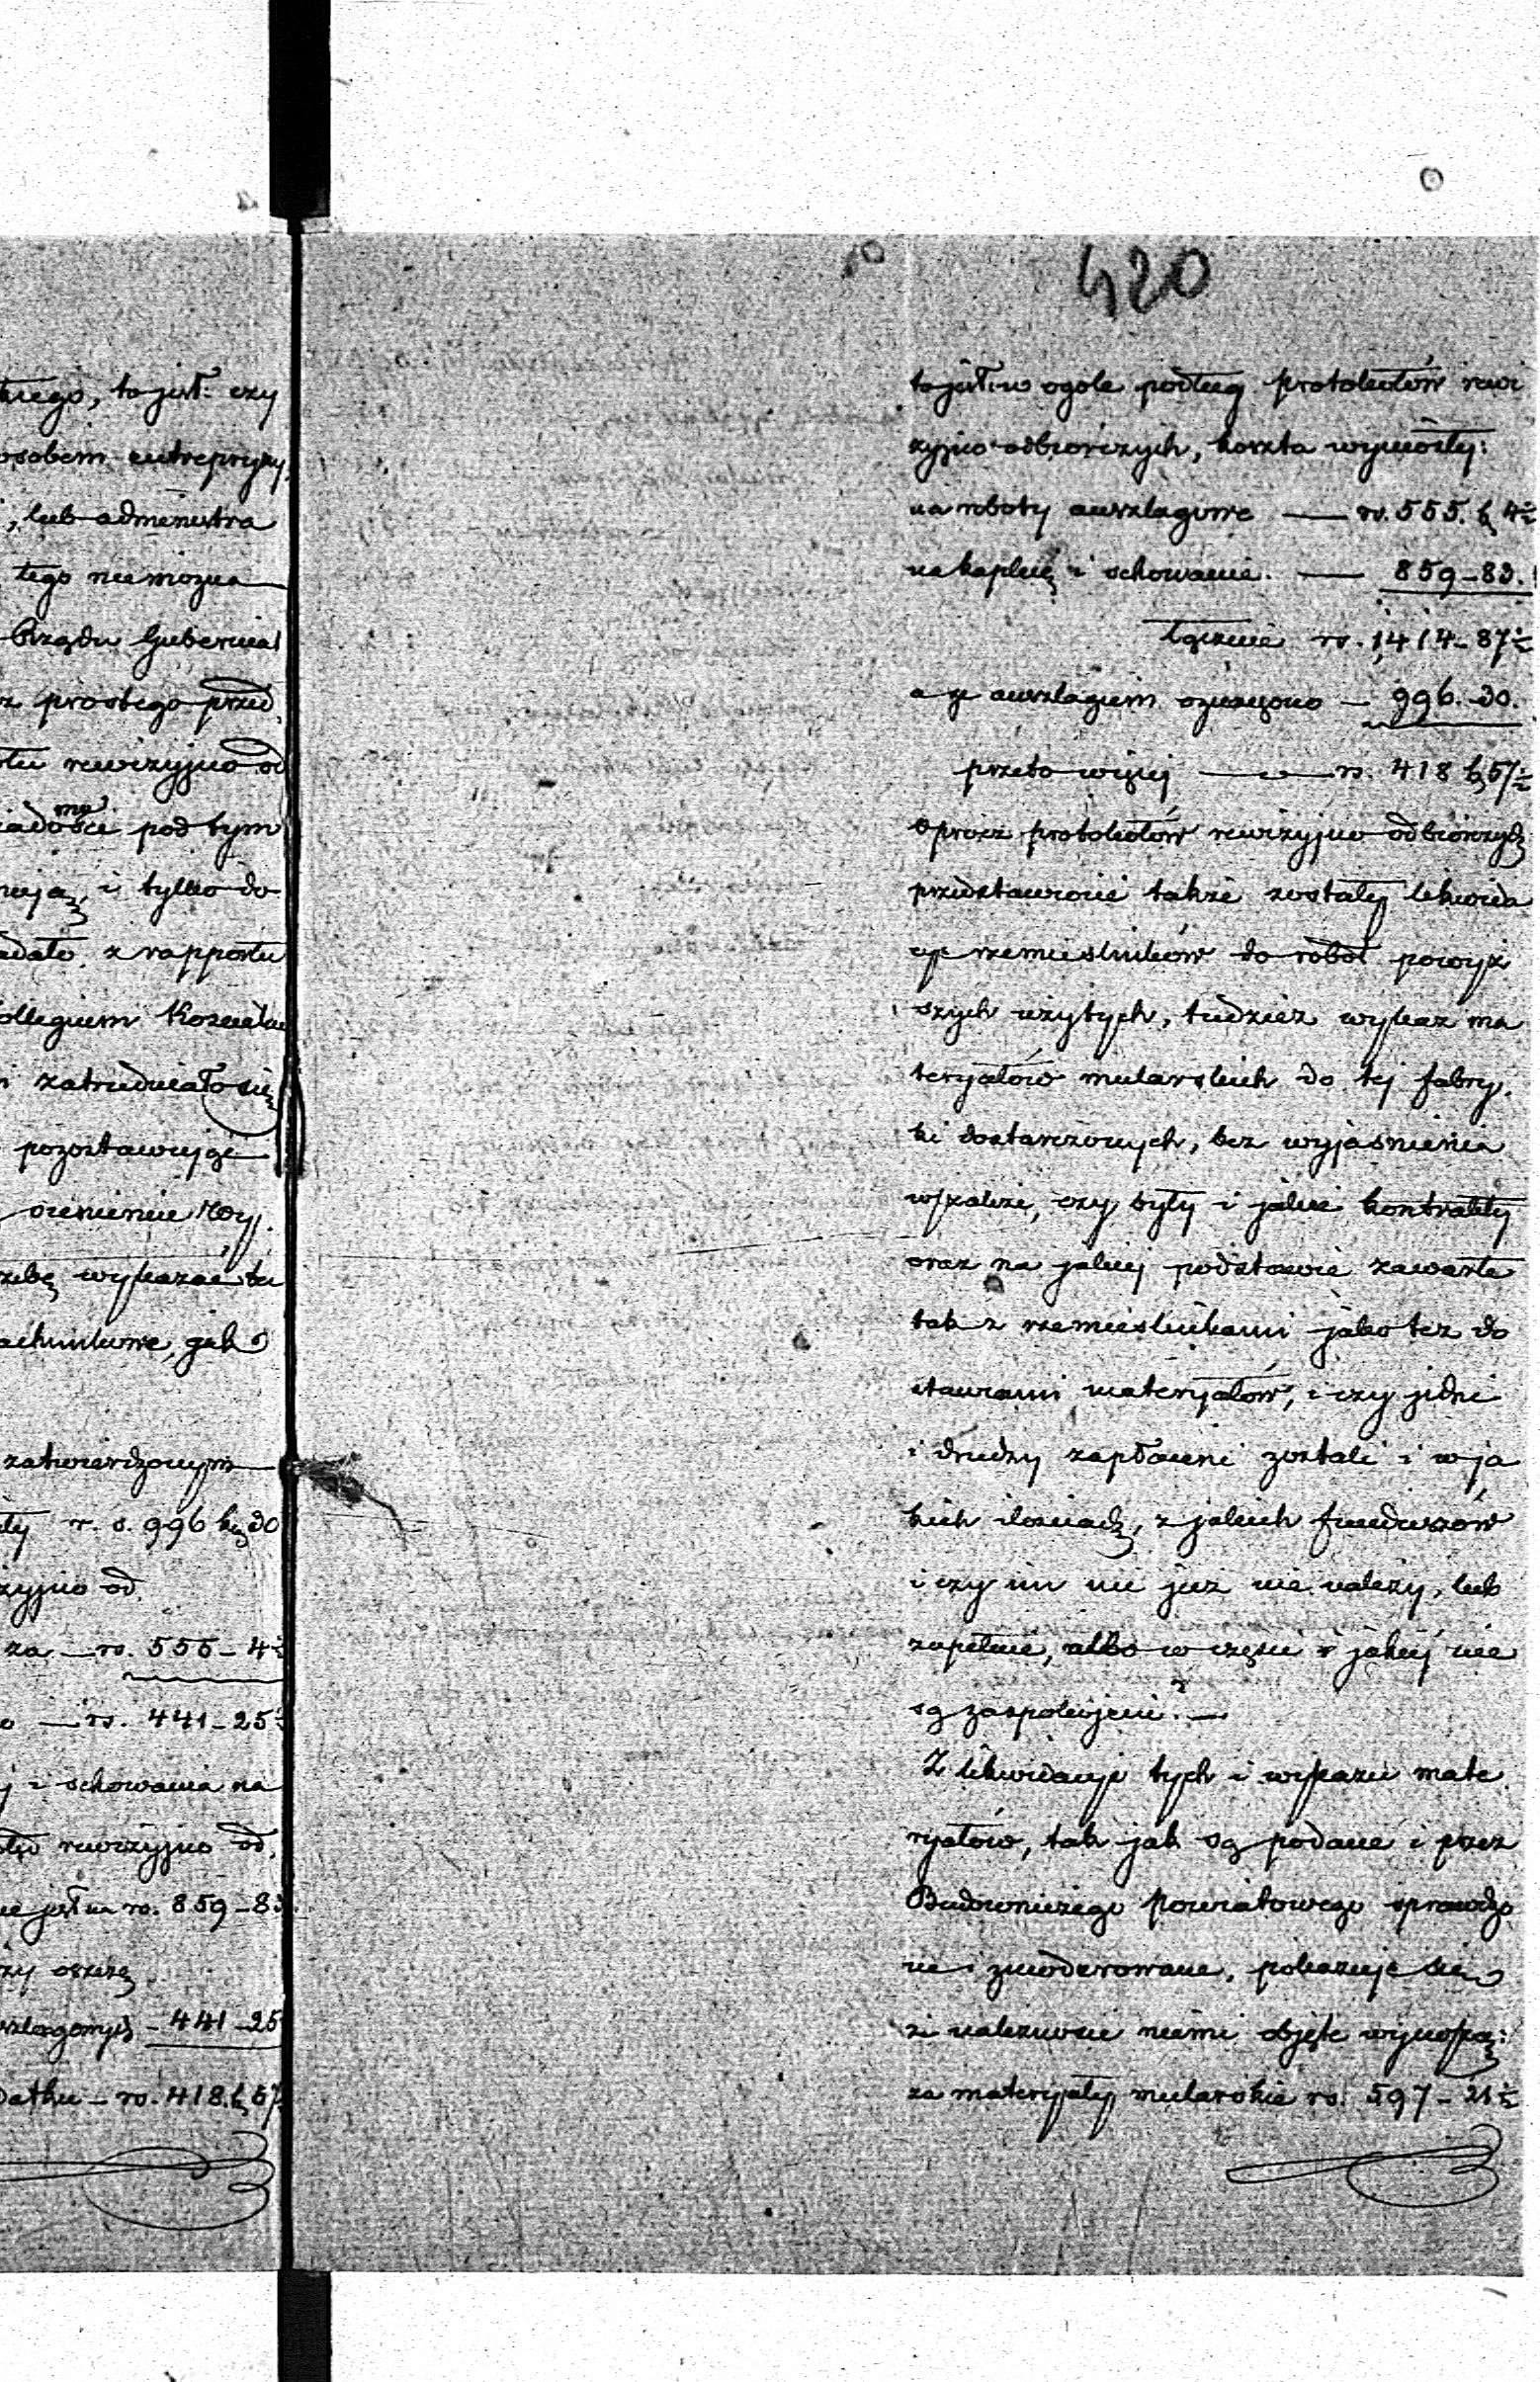 kiego, to jest. czy
osobem entrepryzy,
, lub administra
tego nie można
Rządu Gubernial
prostego przed
rewizyjno od
pod tym
i tylko do
z rapportu
ollegium Koscielne
zatrudniało się
pozostawując
ocenienie Wy.
wykazać tu
achunkowe, jak
zatwierdzonym
r. s. 996 k 30
zyjno od
za — rs. 555 - 4½
— rs. 441 - 25½
i schowania na
rewizyjno od,
jest na rs. 859 - 83.
441 - 25
datku - rs. 418. k 57½
420
to jest w ogole podług protokołów rewi
zyjno odbiorczych, koszta wyniosły:
na roboty anszlagowe — rs. 555. k 4½
na kaplicę i schowanie. — 859 - 83.
łącznie rs. 1,414 - 87½
a że anszlagiem oznaczono — 996. 30.
przeto więcej — rs. 418 k 57½
oprocz protokołów rewizyjno odbiorczych
przedstawione także zostały likwida
cje rzemieslników do robot powyż
szych użytych, tudzież wykaz ma
teryałów mularskich do tej fabry.
ki dostarczonych, bez wyjasnienia
wszakże, czy były i jakie kontrakty
oraz na jakiej podstawie zawarte
tak z rzemieslnikami jako też do
stawcami materyałów, i czy jedni
i drudzy zapłaceni zostali i w ja
kich ilosciach, z jakich funduszów
i czy im nic już nie należy, lub
zupełnie, albo w częsci jakiej nie
są zaspokojeni? —
Z likwidacyi tych i wykazu mate
ryałów, tak jak są podane i przez
Budowniczego powiatowego sprawdzo
ne i zmoderowane, pokazuje się
że należnoscie niemi objęte wynoszą:
za materyały mularskie rs. 597 - 21½